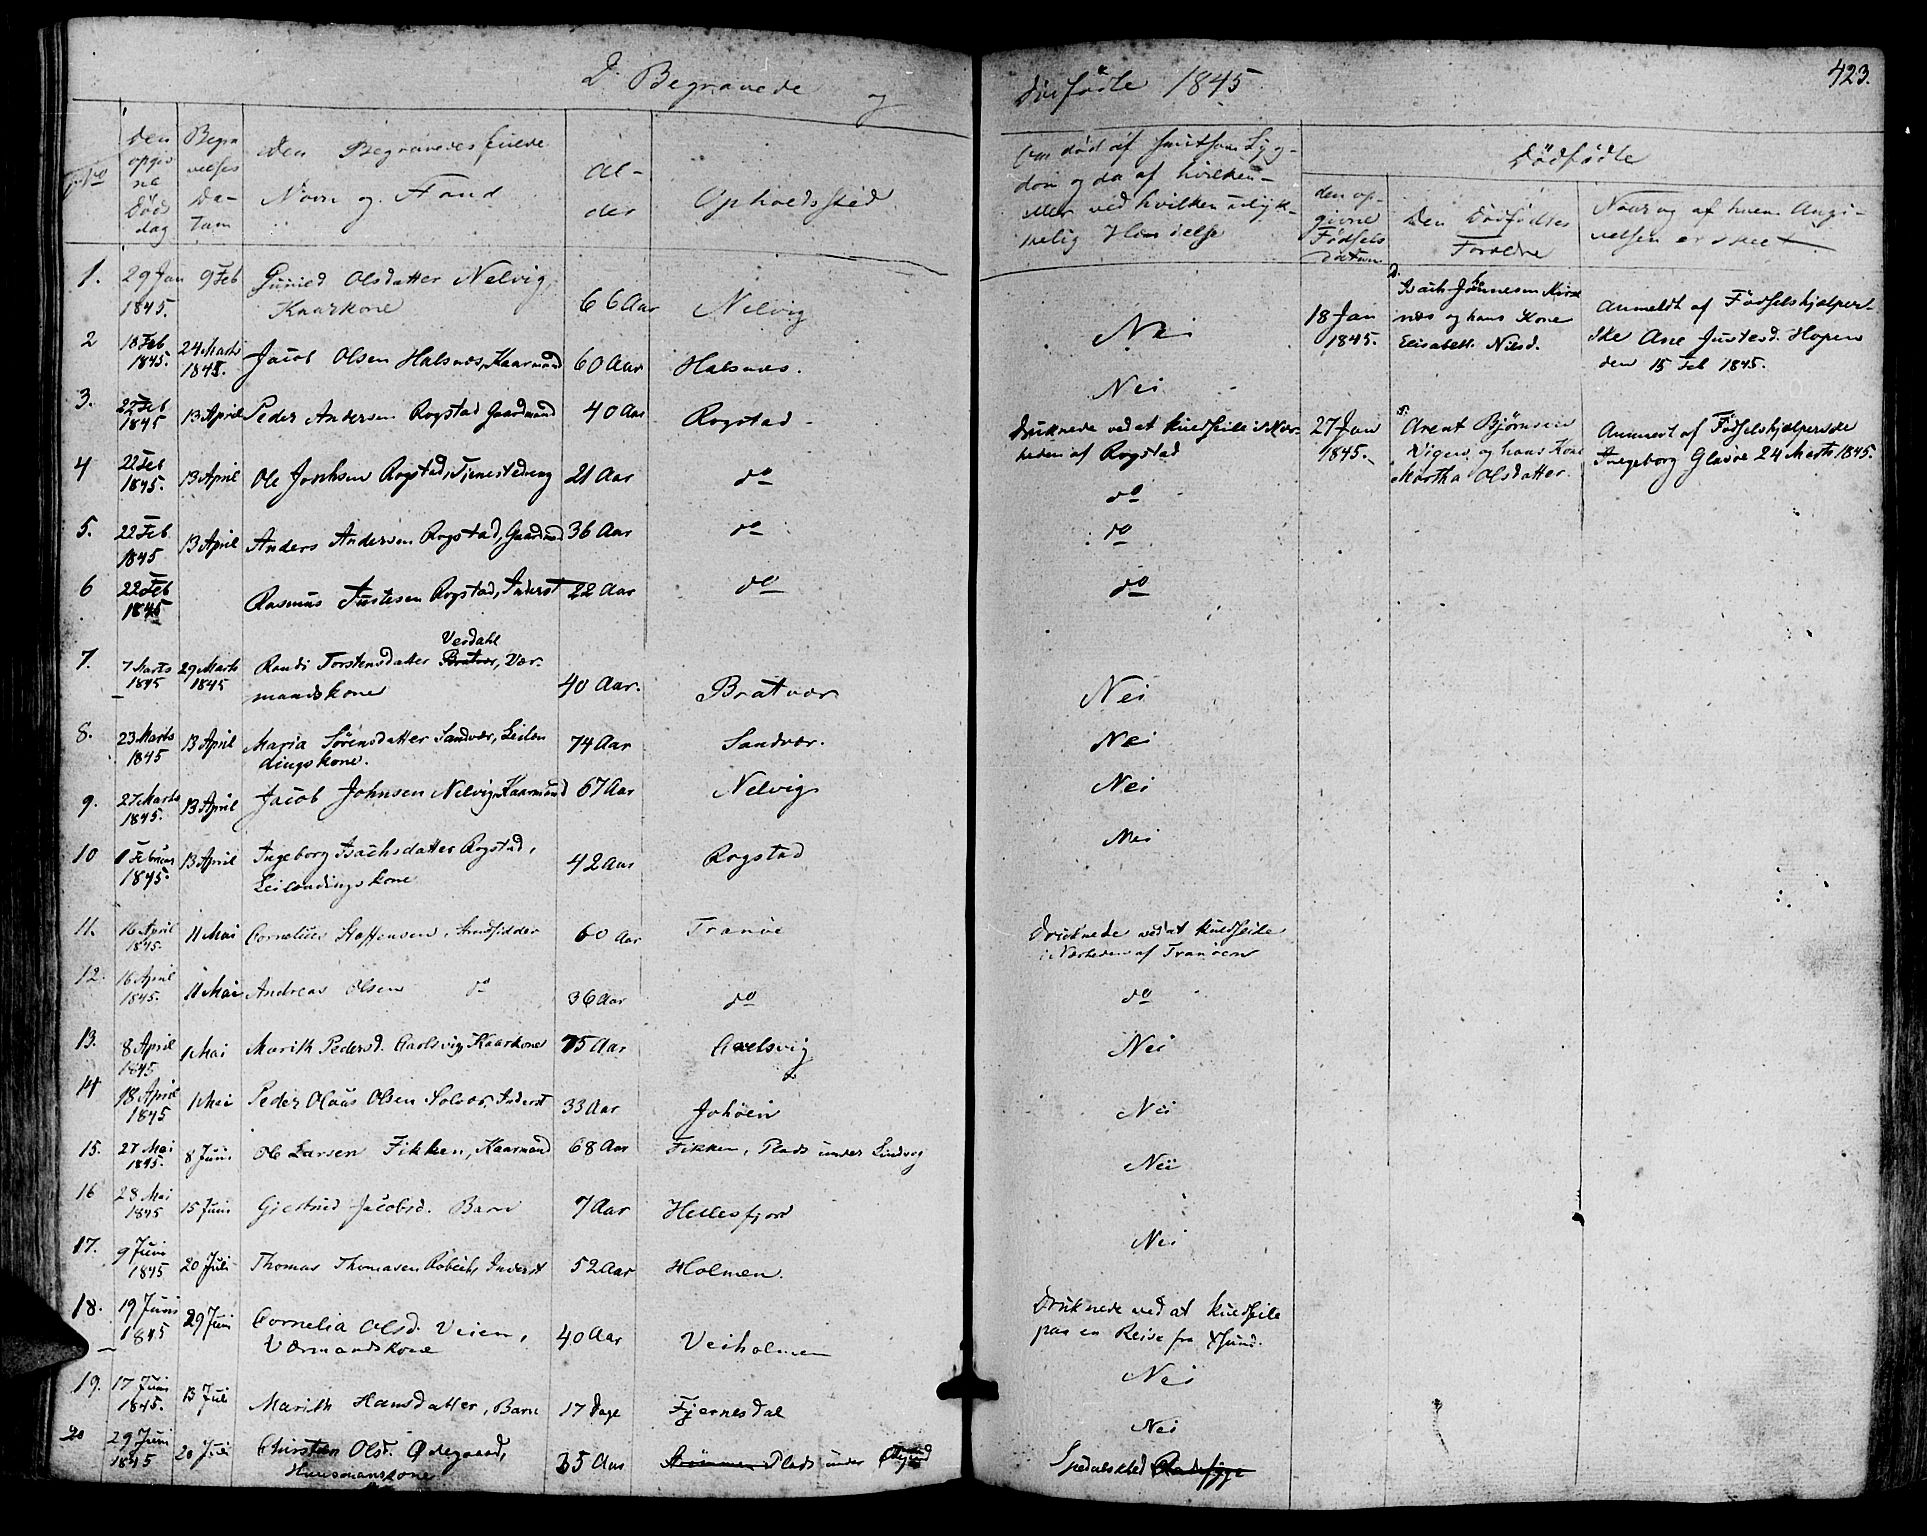 D. Begravede og
dødfødte 1845
423.
No
Den opgivne Døds dag
Begravelses Datum
Den Begravedes fulde Navn og Stand
Alder
Opholdssted
Om død af smitsom Sygdom og da af hvilken eller ved hvilken ulykkelig Hændelse
Dødfødte
den opgivne Fødsels datum
Den Dødfødtes Forældre
Naar og af hvem Angivelsen er skeet
1. 29 Jan 1845. 9 Feb Gunild Olsdatter Nelvig, Kaarkone 66 Aar Nelvig Nei
2 18 Feb 1845. 24 Marts 1845. Jacob Olsen Halsnæs, Kaarmand 60 Aar Halsnæs. Nei
3. 22 Feb 1845 13 April Peder Andersen Rogstad Gaardmand 40 Aar Rogstad Druknede ved at kuldseile i Nærheden af Rogstad
4 22 Feb 1845. 13 April Ole Johnsen Rogstad, Tjenestedreng 21 Aar do do
5. 22 Feb 1845 13 April Anders Andersen Rogstad, Gaardmd 36 Aar do do
6 22 Feb 1845 Rasmus Justesen Rogstad, Inderst 22 Aar do do
7. 7 Marts 1845 29 Marts 1845 Randi Torstensdatter Verdahl Bratvær, Værmandskone 40 Aar. Bratvær Nei
8. 23 Marts 1845 13 April Maria Sørensdatter Sandvær, Leilendingskone. 74 Aar Sandvær. Nei
9. 27 Marts 1845. 13 April Jacob Johnsen Nelvig Kaarmand 67 Aar Nelvig Nei
10 1 Februar 1845. 13 April Ingeborg Isachsdatter Rogstad, Leilendingskone 42 Aar Rogstad Nei
11. 16 April 1845. 11 Mai Cornelius Steffensen, Strandsidder 60 Aar Tranöe Druknede ved at kuldseile i Nærheden af Tranöen
12. 16 April 1845. 11 Mai Andreas Olsen do 36 Aar do do
13. 8 April 1845 1 Mai Marith Pedersd. Carlsvig Kaarkone 75 Aar Axelsvig Nei
14 18 April 1845 1 Mai Peder Olaus Olsen Solvær, Inderst 33 Aar Johöen Nei
15. 27 Mai 1845. 8 Juni Ole Larsen Fikken, Kaarmand 68 Aar Fikken, Plads under Lindvog Nei
16 28 Mai 1845 15 Juni Giertrud Jacobsd. Barn 7 Aar Hellesfjord Nei
17. 9 Juni 1845 20 Juli Thomas Thomasen Inderst 52 Aar Holmen. Druknede ved at kuldseile paa en Reise fra Xsund.
18. 19 Juni 1845 29 Juni Cornelia Olsd. Veien, Værmandskone 40 Aar Veiholmen Nei
19. 17 Juni 1845. 13 Juli Marith Hansdatter, Barn 17 Dage Fjernesdal Nei
20 29 Juni 1845 20 Juli Olsd. Ødegaard, Huusmandskone 35 Aar Plads under Spedalskhed Radesyge
D. 18 Jan 1845. Isach Johnnesen Kirknæs og hans Kone Elisabeth Nilsd. Anmeldt af Fødselshjælperske Ane Justesd. Hopen den 15 Feb 1845.
S. 27 Jan 1845. Arent Bjørnsen Vigen, og hans Kone Martha Olsdatter. Anmeldt af Fødselshjælperske Ingeborg Glasøe 24 Marts 1845.